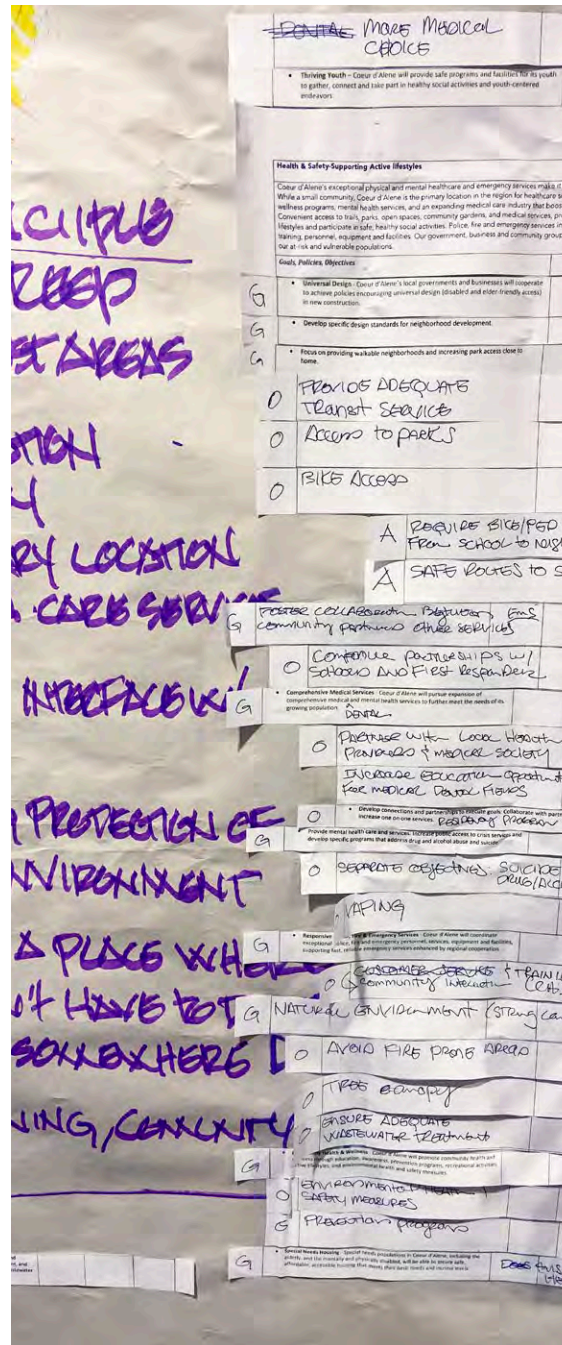 MORE MEDICAL
CHOICE
• Thriving Youth – Coeur d'Alene will provide safe programs and facilities for its youth
to gather, connect and take part in healthy social activities and youth-centered
endeavors.
Health & Safety-Supporting Active lifestyles
Coeur d'Alene's exceptional physical and mental healthcare and emergency services make it
While a small community, Coeur d'Alene is the primary location in the region for healthcare
wellness programs, mental health services, and an expanding medical care industry that
Convenient access to trails, parks, open spaces, community gardens, and medical services,
lifestyles and participate in safe, healthy social activities. Police, fire and emergency services
training, personnel, equipment and facilities. Our government, business and community
our at-risk and vulnerable populations.
Goals, Policies, Objectives
G • Universal Design - Coeur d'Alene's local governments and businesses will cooperate
to achieve policies encouraging universal design (disabled and elder-friendly access)
in new construction.
G • Develop specific design standards for neighborhood development.
G • Focus on providing walkable neighborhoods and increasing park access close to
home.
O PROVIDE ADEQUATE
TRANSIT SERVICE
O ACCESS TO PARKS
O BIKE ACCESS
A REQUIRE BIKE/PED
FROM SCHOOL TO
A SAFE ROUTES TO
G FOSTER COLLABORATION BETWEEN EMS
community partners other SERVICES
O CONTINUE PARTNERSHIPS W/
SCHOOLS AND FIRST RESPONDERS
G • Comprehensive Medical Services - Coeur d'Alene will pursue expansion of
comprehensive medical and mental health services to further meet the needs of its
growing population. DENTAL
O PARTNER WITH LOCAL HEALTH
PROVIDERS & MEDICAL SOCIETY
INCREASE EDUCATION
FOR MEDICAL DENTAL FIELDS
O • Develop connections and partnerships to mediate goals. Collaborate with
increase one on one services. RESIDENCY PROGRAM
G Provide mental health care and services. Increase public access to crisis services and
develop specific programs that address drug and alcohol abuse and suicide.
O SEPARATE OBJECTIVES. SUICIDE
VAPING
G • Responsive Fire & Emergency Services - Coeur d'Alene will coordinate
exceptional police, fire and emergency personnel, services, equipment and facilities,
supporting fast, reliable emergency services enhanced by regional cooperation.
O CUSTOMER SERVICE &
COMMUNITY INTERACTION
G NATURAL ENVIRONMENT
O AVOID FIRE PRONE AREAS
O TREE CANOPY
O ENSURE ADEQUATE
WASTEWATER TREATMENT
G Health & Wellness - Coeur d'Alene will promote community health and
through education, awareness, prevention programs, recreational activities,
lifestyles, and environmental health and safety measures.
O ENVIRONMENTAL HEALTH
SAFETY MEASURES
G PREVENTION PROGRAMS
G • Special Needs Housing - Special needs populations in Coeur d'Alene, including the
elderly, and the mentally and physically disabled, will be able to secure safe,
affordable, accessible housing that meets their basic needs and
AREAS
LOCATION
CARE
INTERFACE W/
PROTECTION OF
A PLACE WHERE
HAVE TO
SOMEWHERE
COMMUNITY